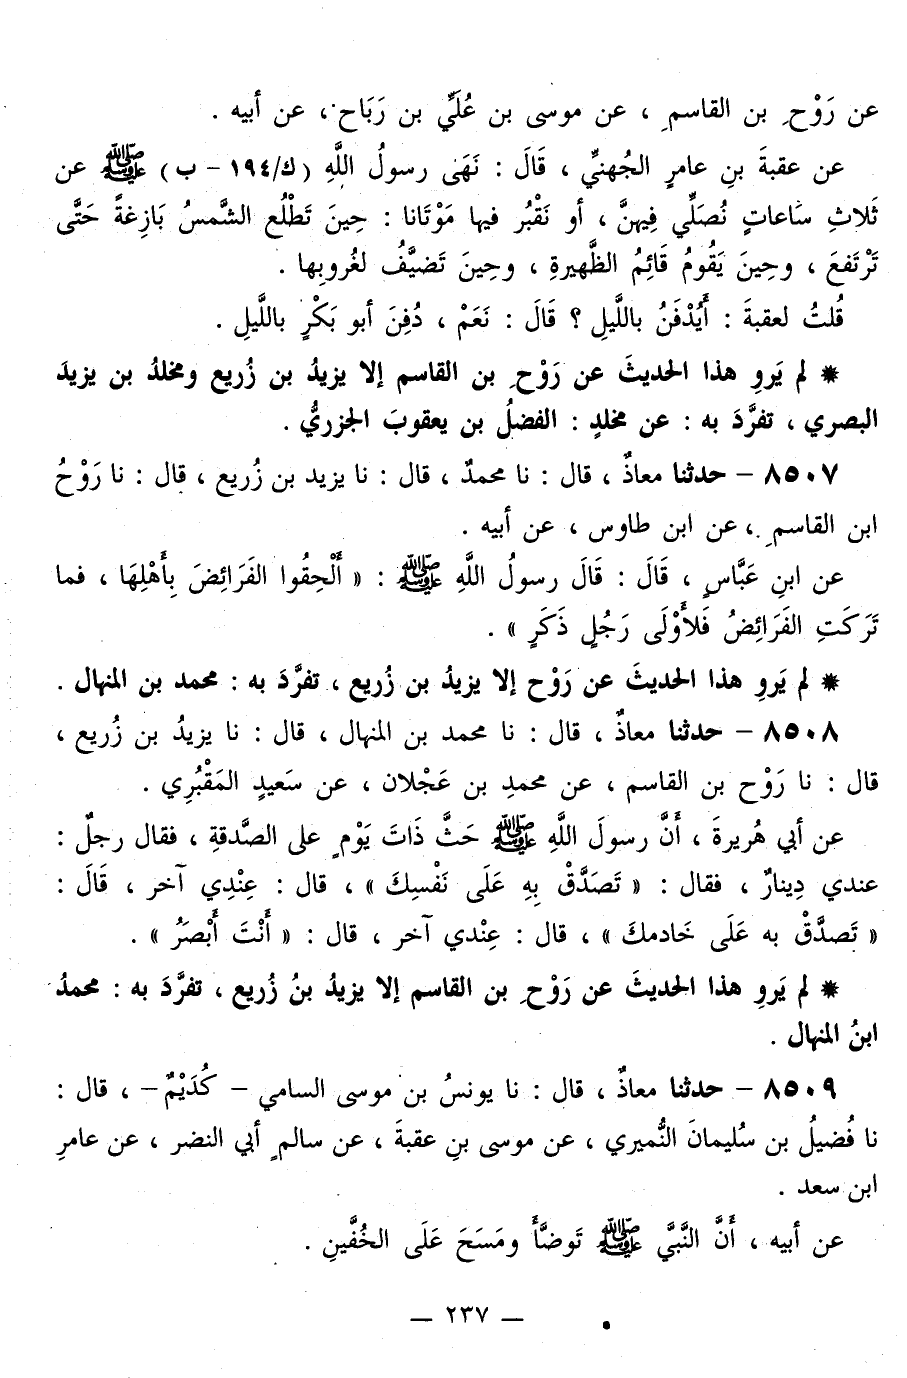 عن رَوْحِ بن القاسمِ ، عن موسى بن عُلَيِّ بن رَبَاح ، عن أبيه .
عن عقبةَ بنِ عامرٍ الجُهنيِّ ، قَالَ : نَهَى رسولُ اللَّهِ (ك/١٩٤ - ب) ﷺ عن
ثَلاثِ سَاعاتٍ نُصَلِّي فِيهنَّ ، أو نَقْبُر فيها مَوْتَانا : حِينَ تَطْلُع الشَّمسُ بَازِغةً حَتَّى
تَرْتَفعَ ، وحِينَ يَقُومُ قَائِمُ الظَّهيرةِ ، وحِينَ تَضيَّفُ لغُروبِها .
قُلتُ لعقبةَ : أَيُدْفَنُ باللَّيلِ ؟ قَالَ : نَعَمْ ، دُفِنَ أبو بَكْرٍ باللَّيلِ .
* لم يَروِ هذا الحديثَ عن رَوْحِ بن القاسم إلا يزيدُ بن زُريع ومخلدُ بن يزيدَ
البصري ، تفرَّدَ به : عن مخلدٍ : الفضلُ بن يعقوبَ الجزريُّ .
٨٥٠٧ - حدثنا معاذٌ ، قال : نا محمدٌ ، قال : نا يزيد بن زُريع ، قال : نا رَوْحُ
ابن القاسمِ ، عن ابن طاوس ، عن أبيه .
عن ابنِ عَبَّاسٍ ، قَالَ : قَالَ رسولُ اللَّهِ ﷺ : « أَلْحِقُوا الفَرَائِضَ بِأَهْلِهَا ، فما
تَرَكَتِ الفَرَائِضُ فَلأَوْلَى رَجُلٍ ذَكَرٍ » .
* لم يَروِ هذا الحديثَ عن رَوْح إلا يزيدُ بن زُريع ، تفرَّدَ به : محمد بن المنهال .
٨٥٠٨ - حدثنا معاذٌ ، قال : نا محمد بن المنهال ، قال : نا يزيدُ بن زُريع ،
قال : نا رَوْح بن القاسم ، عن محمدِ بن عَجْلان ، عن سَعيدٍ المَقْبُرِي .
عن أبي هُريرةَ ، أَنَّ رسولَ اللَّهِ ﷺ حَثَّ ذَاتَ يَوْمٍ على الصَّدقةِ ، فقال رجلٌ :
عندي دِينارٌ ، فقال : « تَصَدَّقْ بِهِ عَلَى نَفْسِكَ » ، قال : عِنْدِي آخر ، قَالَ :
« تَصدَّقْ به عَلَى خَادمكَ » ، قال : عِنْدي آخر ، قال : « أَنْتَ أَبْصَرُ » .
* لم يَروِ هذا الحديثَ عن رَوْحِ بن القاسم إلا يزيدُ بنُ زُريع ، تفرَّدَ به : محمدُ
ابنُ المنهال .
٨٥٠٩ - حدثنا معاذٌ ، قال : نا يونسُ بن موسى السامي - كُدَيْمٌ - ، قال :
نا فُضيلُ بن سُليمانَ النُّميري ، عن موسى بنِ عقبةَ ، عن سالمٍ أبي النضر ، عن عامرِ
ابن سعد .
عن أبيه ، أَنَّ النَّبيَّ ﷺ تَوضَّأَ ومَسَحَ عَلَى الخُفَّينِ .
- ٢٣٧ -